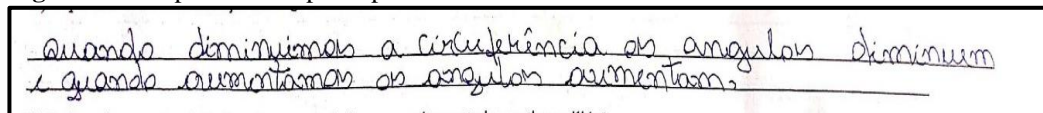 quando diminuimos a circuferência os angulos diminuem
e quando aumentamos os angulos aumentam,